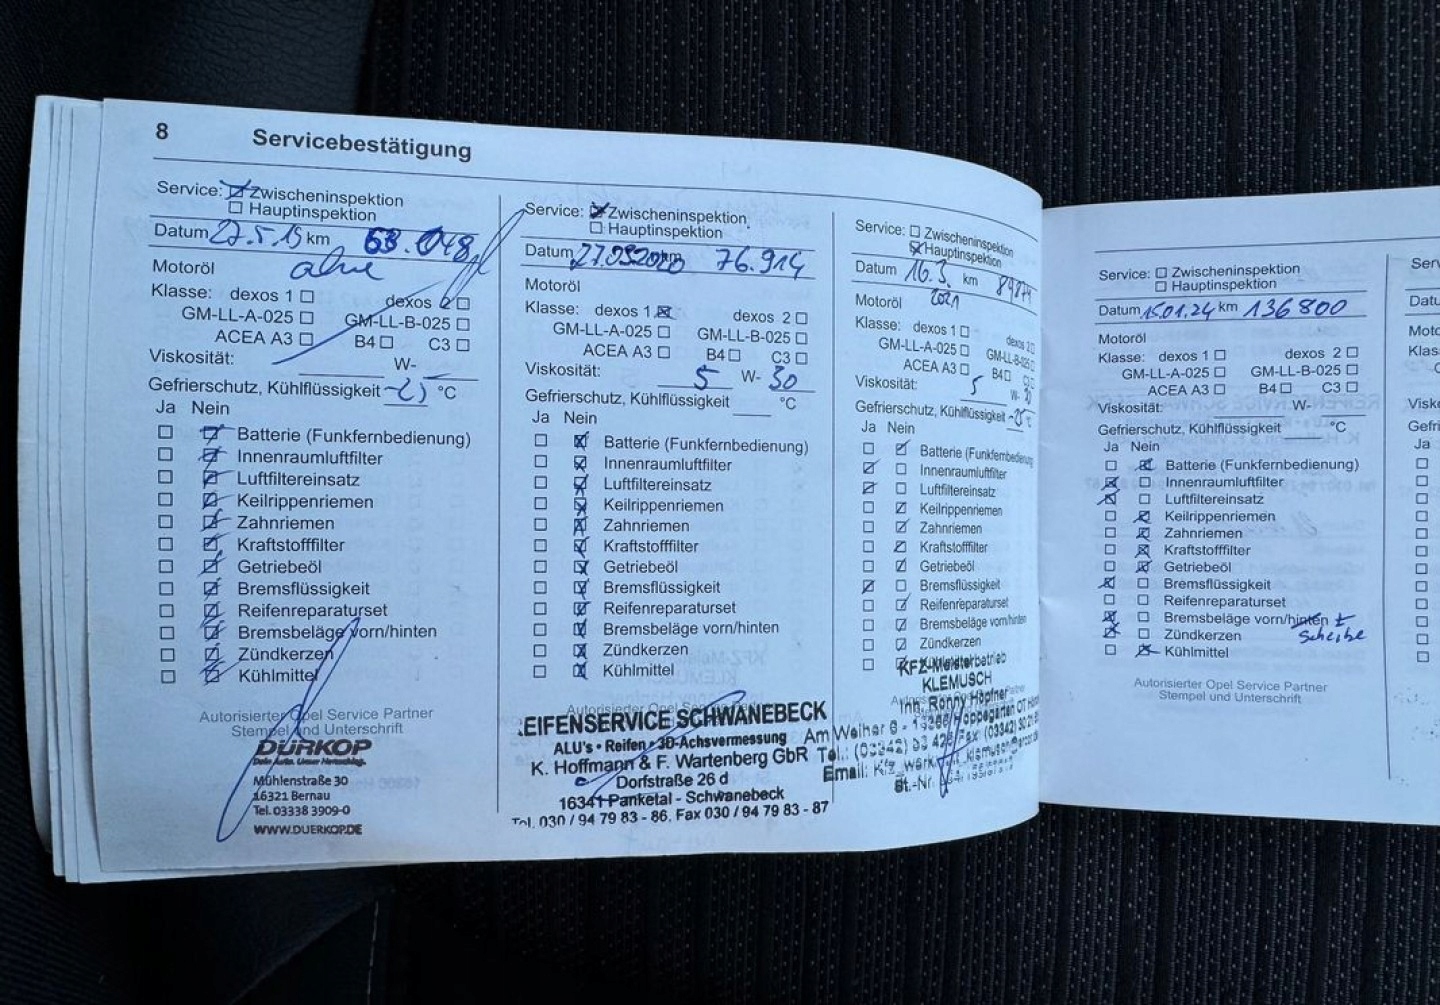 8 Servicebestätigung
Service: Zwischeninspektion
Hauptinspektion
Datum 27.5.19 km 63.048
Motoröl ohne
Klasse: dexos 1 dexos 2
GM-LL-A-025 GM-LL-B-025
ACEA A3 B4 C3
Viskosität: W-
Gefrierschutz, Kühlflüssigkeit °C
Ja Nein
Batterie (Funkfernbedienung)
Innenraumluftfilter
Luftfiltereinsatz
Keilrippenriemen
Zahnriemen
Kraftstofffilter
Getriebeöl
Bremsflüssigkeit
Reifenreparaturset
Bremsbeläge vorn/hinten
Zündkerzen
Kühlmittel
Autorisierter Opel Service Partner
Stempel und Unterschrift
DÜRKOP
Dein Auto. Unser Herzschlag.
Mühlenstraße 30
16321 Bernau
Tel. 03338 3909-0
WWW.DUERKOP.DE
Service: Zwischeninspektion
Hauptinspektion
Datum 27.05.2020 km 76.914
Motoröl
Klasse: dexos 1 dexos 2
GM-LL-A-025 GM-LL-B-025
ACEA A3 B4 C3
Viskosität: 5 W- 30
Gefrierschutz, Kühlflüssigkeit °C
Ja Nein
Batterie (Funkfernbedienung)
Innenraumluftfilter
Luftfiltereinsatz
Keilrippenriemen
Zahnriemen
Kraftstofffilter
Getriebeöl
Bremsflüssigkeit
Reifenreparaturset
Bremsbeläge vorn/hinten
Zündkerzen
Kühlmittel
Autorisierter Opel Service Partner
EIFENSERVICE SCHWANEBECK
ALU's • Reifen • 3D-Achsvermessung
K. Hoffmann & F. Wartenberg GbR
Dorfstraße 26 d
16341 Panketal - Schwanebeck
Tel. 030 / 94 79 83 - 86, Fax 030 / 94 79 83 - 87
Service: Zwischeninspektion
Hauptinspektion
Datum 16.3. km 89874
2021
Motoröl
Klasse: dexos 1 dexos 2
GM-LL-A-025 GM-LL-B-025
ACEA A3 B4
Viskosität: 5 W- 30
Gefrierschutz, Kühlflüssigkeit -25 °C
Ja Nein
Batterie (Funkfernbedienung
Innenraumluftfilter
Luftfiltereinsatz
Keilrippenriemen
Zahnriemen
Kraftstofffilter
Getriebeöl
Bremsflüssigkeit
Reifenreparaturset
Bremsbeläge vorn/hinten
Zündkerzen
KFZ-Meisterbetrieb
KLEMUSCH
Inh. Ronny Höpfner
Am Weiher 6 - 15366 Hoppegarten OT
Tel.: (03342)
Email:
St.-Nr.
Service: Zwischeninspektion
Hauptinspektion
Datum 15.01.24 km 136800
Motoröl
Klasse: dexos 1 dexos 2
GM-LL-A-025 GM-LL-B-025
ACEA A3 B4 C3
Viskosität: W-
Gefrierschutz, Kühlflüssigkeit °C
Ja Nein
Batterie (Funkfernbedienung)
Innenraumluftfilter
Luftfiltereinsatz
Keilrippenriemen
Zahnriemen
Kraftstofffilter
Getriebeöl
Bremsflüssigkeit
Reifenreparaturset
Bremsbeläge vorn/hinten +
Zündkerzen Scheibe
Kühlmittel
Autorisierter Opel Service Partner
Stempel und Unterschrift